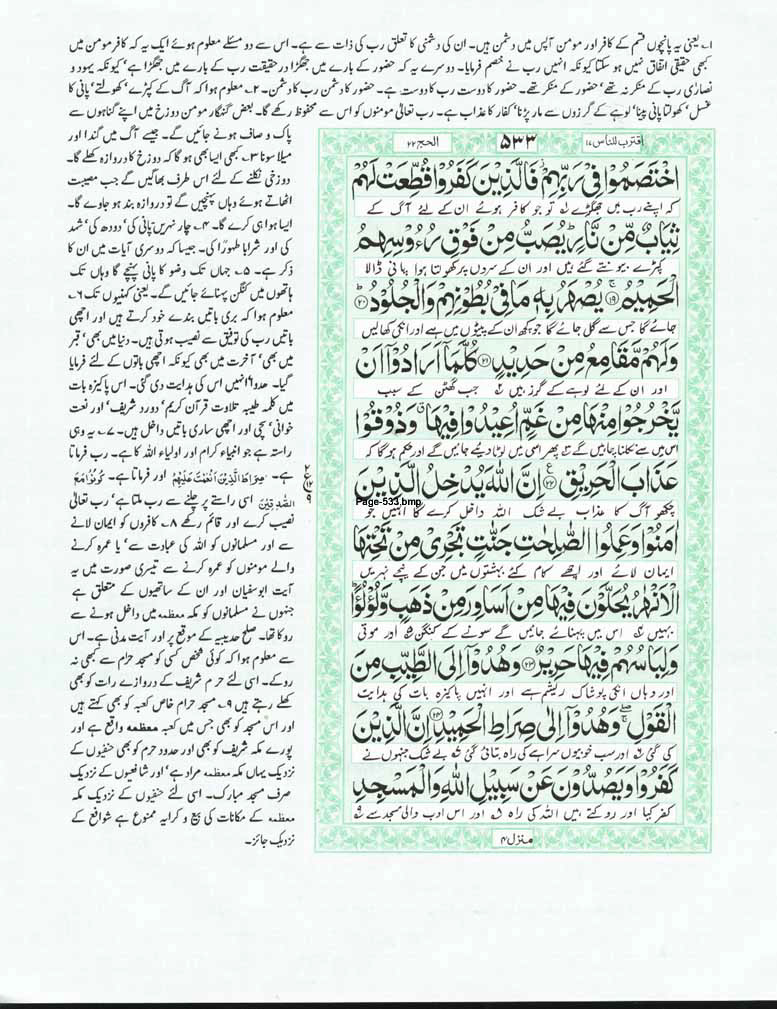 ۱۔ یعنی یہ پانچوں قسم کے کافر اور مومن آپس میں دشمن ہیں۔ ان کی دشمنی کا تعلق رب کی ذات سے ہے۔ اس سے دو مسئلے معلوم ہوئے ایک یہ کہ کافر مومن میں
کبھی حقیقی اتفاق نہیں ہو سکتا کیونکہ انہیں رب نے خصم فرمایا۔ دوسرے یہ کہ حضور کے بارے میں جھگڑا درحقیقت رب کے بارے میں جھگڑا ہے' کیونکہ یہود و
نصاریٰ رب کے منکر نہ تھے' حضور کے منکر تھے۔ حضور کا دوست رب کا دوست ہے۔ حضور کا دشمن رب کا دشمن۔ ۲۔ معلوم ہوا کہ آگ کے کپڑے' کھولتے' پانی کا
غسل' کھولتا پانی پینا' لوہے کے گرزوں سے مار پڑنا' کفار کا عذاب ہے۔ رب تعالیٰ مومنوں کو اس سے محفوظ رکھے گا۔ بعض گنہگار مومن دوزخ میں اپنے گناہوں سے
پاک و صاف ہونے جائیں گے۔ جیسے آگ میں گندا اور
میلا سونا ۳۔ کبھی ایسا بھی ہو گا کہ دوزخ کا دروازہ کھلے گا۔
دوزخی نکلنے کے لئے اس طرف بھاگیں گے جب مصیبت
اٹھاتے ہوئے وہاں پہنچیں گے تو دروازہ بند ہو جاوے گا۔
ایسا ہوا ہی کرے گا۔ ۴۔ چار نہریں پانی کی' دودھ کی' شہد
کی اور شرابا طہورا کی۔ جیسا کہ دوسری آیات میں ان کا
ذکر ہے۔ ۵۔ جہاں تک وضو کا پانی پہنچے گا وہاں تک
ہاتھوں میں کنگن پہنائے جائیں گے۔ یعنی کہنیوں تک ۶۔
معلوم ہوا کہ بری باتیں بندے خود کرتے ہیں اور اچھی
باتیں رب کی توفیق سے نصیب ہوتی ہیں۔ دنیا میں بھی' قبر
میں بھی' آخرت میں بھی کیونکہ اچھی باتوں کے لئے فرمایا
گیا۔ ھدوا انہیں اس کی ہدایت دی گئی۔ اس پاکیزہ بات
میں کلمہ طیبہ تلاوت قرآن کریم' درود شریف' اور نعت
خوانی' سچی اور اچھی ساری باتیں داخل ہیں۔ ۷۔ یہ وہی
راستہ ہے جو انبیاء کرام اور اولیاء اللہ کا ہے۔ رب فرماتا
ہے۔ صِرَاطَ الَّذِيْنَ اَنْعَمْتَ عَلَيْهِمْ اور فرماتا ہے۔ كُوْنُوْا مَعَ
الصّٰدِقِيْنَ اسی راستے پر چلنے سے رب ملتا ہے' رب تعالیٰ
نصیب کرے اور قائم رکھے ۸۔ کافروں کو ایمان لانے
سے اور مسلمانوں کو اللہ کی عبادت سے' یا عمرہ کرنے
والے مومنوں کو عمرہ کرنے سے تیسری صورت میں یہ
آیت ابوسفیان اور ان کے ساتھیوں کے متعلق ہے
جنہوں نے مسلمانوں کو مکہ معظمہ میں داخل ہونے سے
روکا تھا۔ صلح حدیبیہ کے موقع پر اور آیت مدنی ہے۔ اس
سے معلوم ہوا کہ کوئی شخص کسی کو مسجد حرام سے کبھی نہ
روکے۔ اسی لئے حرم شریف کے دروازے رات کو بھی
کھلے رہتے ہیں ۹۔ مسجد حرام خاص کعبہ کو بھی کہتے ہیں
اور اس مسجد کو بھی جس میں کعبہ معظمہ واقع ہے اور
پورے مکہ شریف کو بھی اور حدود حرم کو بھی حنفیوں کے
نزدیک یہاں مکہ معظمہ مراد ہے' اور شافعیوں کے نزدیک
صرف مسجد مبارک۔ اسی لئے حنفیوں کے نزدیک مکہ
معظمہ کے مکانات کی بیع و کرایہ ممنوع ہے شوافع کے
نزدیک جائز۔
اقترب للناس ۱۷
۵۳۳
الحج ۲۲
اخْتَصَمُوْا فِیْ رَبِّهِمْ فَالَّذِیْنَ كَفَرُوْا قُطِّعَتْ لَهُمْ
کہ اپنے رب میں جھگڑے ۱ تو جو کافر ہوئے ان کے لئے آگ کے
ثِیَابٌ مِّنْ نَّارٍ یُصَبُّ مِنْ فَوْقِ رُءُوْسِهِمُ
کپڑے بیونتے گئے ہیں اور ان کے سروں پر کھولتا ہوا پانی ڈالا
الْحَمِیْمُ ۱۹ یُصْهَرُ بِهٖ مَا فِیْ بُطُوْنِهِمْ وَالْجُلُوْدُ ۲۰
جائے گا جس سے گل جائے گا جو کچھ ان کے پیٹوں میں ہے اور انکی کھالیں
وَلَهُمْ مَّقَامِعُ مِنْ حَدِیْدٍ ۲۱ كُلَّمَاۤ اَرَادُوْۤا اَنْ
اور ان کے لئے لوہے کے گرز ہیں ۲ جب گھٹن کے سبب
یَّخْرُجُوْا مِنْهَا مِنْ غَمٍّ اُعِیْدُوْا فِیْهَا وَذُوْقُوْا
اس میں سے نکلنا چاہیں گے ۳ پھر اسی میں لوٹا دیئے جائیں گے اور حکم ہو گا کہ
عَذَابَ الْحَرِیْقِ ۲۲ اِنَّ اللّٰهَ یُدْخِلُ الَّذِیْنَ
چکھو آگ کا عذاب بے شک اللہ داخل کرے گا انہیں جو
Page-533.bmp
اٰمَنُوْا وَعَمِلُوا الصّٰلِحٰتِ جَنّٰتٍ تَجْرِیْ مِنْ تَحْتِهَا
ایمان لائے اور اچھے کام کئے بہشتوں میں جن کے نیچے نہریں
الْاَنْهٰرُ یُحَلَّوْنَ فِیْهَا مِنْ اَسَاوِرَ مِنْ ذَهَبٍ وَّلُؤْلُؤًا
بہیں ۴ اس میں پہنائے جائیں گے سونے کے کنگن ۵ اور موتی
وَلِبَاسُهُمْ فِیْهَا حَرِیْرٌ ۲۳ وَهُدُوْۤا اِلَی الطَّیِّبِ مِنَ
اور وہاں انکی پوشاک ریشم ہے اور انہیں پاکیزہ بات کی ہدایت
الْقَوْلِ وَهُدُوْۤا اِلٰی صِرَاطِ الْحَمِیْدِ ۲۴ اِنَّ الَّذِیْنَ
کی گئی ۶ اور سب خوبیوں سراہے کی راہ بتائی گئی ۷ بے شک جنہوں نے
كَفَرُوْا وَیَصُدُّوْنَ عَنْ سَبِیْلِ اللّٰهِ وَالْمَسْجِدِ
کفر کیا اور روکتے ہیں اللہ کی راہ ۸ اور اس ادب والی مسجد سے ۹
منزل ۴